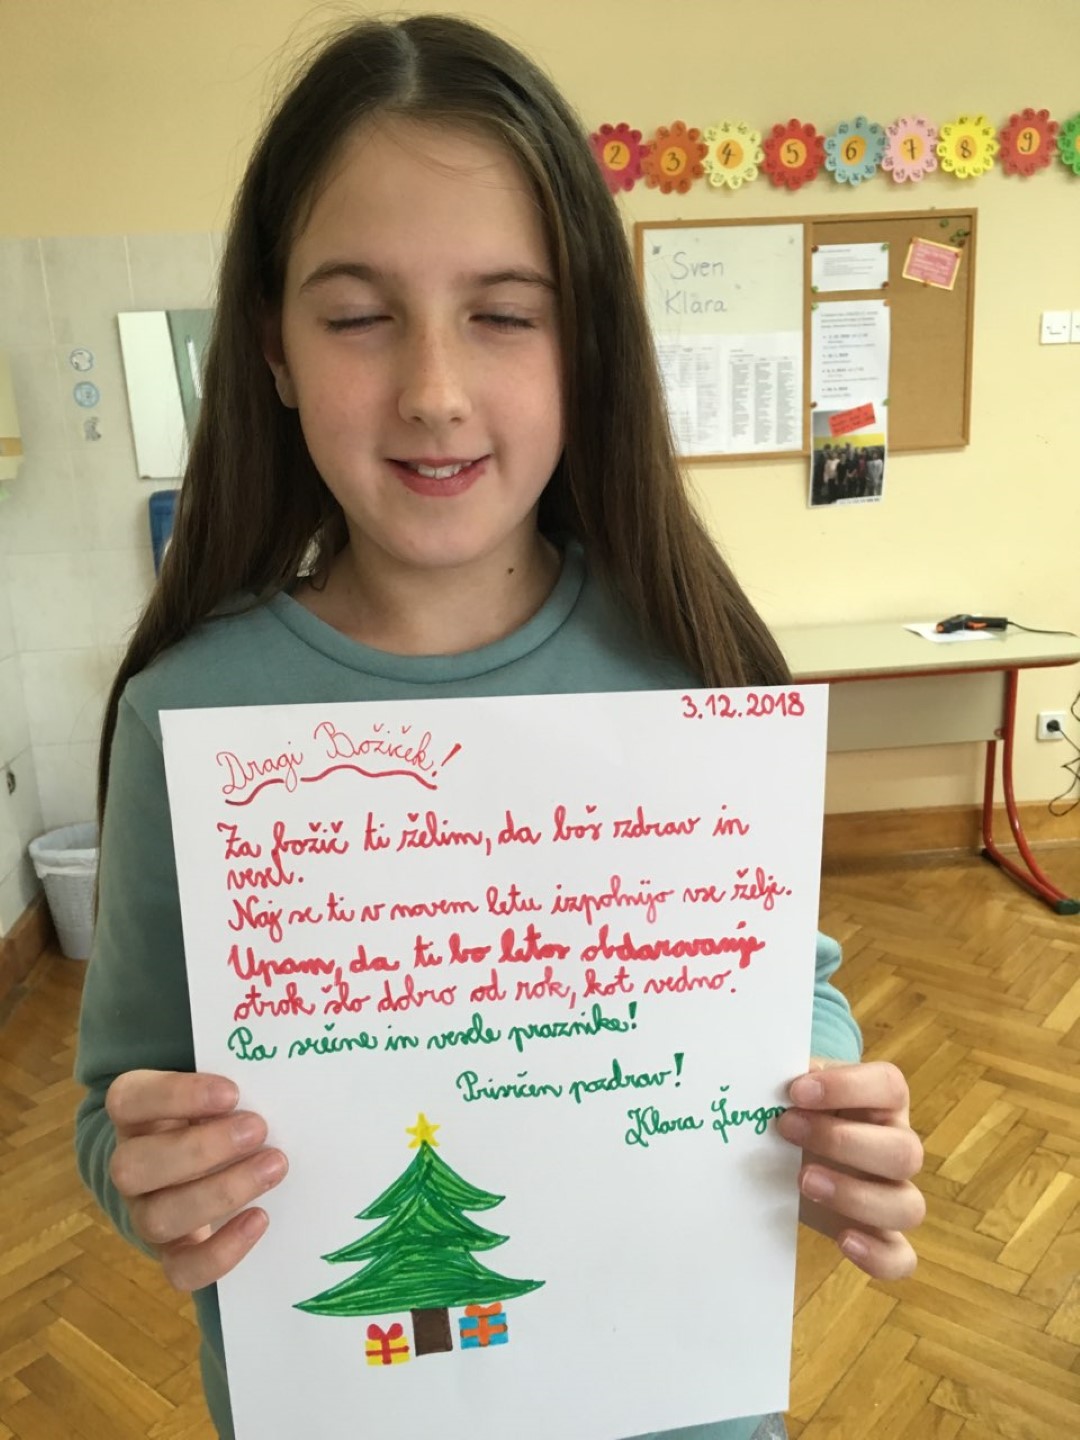 2 3 4 5 6 7 8 9
Sven
Klara
3.12.2018
Dragi Božiček!
Za božič ti želim, da boš zdrav in
vesel.
Naj se ti v novem letu izpolnijo vse želje.
Upam, da ti bo letos obdarovanje
otrok šlo dobro od rok, kot vedno.
Pa srečne in vesele praznike!
Prisrčen pozdrav!
Klara